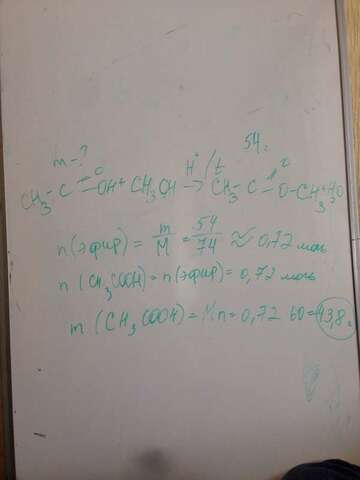 m-? 54г
CH₃-C=O OH + CH₃OH H⁺/t → CH₃-C=O O-CH₃+H₂O
n(эфир) = m/M = 54/74 ≈ 0,72 моль
n (CH₃COOH) = n(эфир) = 0,72 моль
m (CH₃COOH) = M·n = 0,72 60 = 43,8г